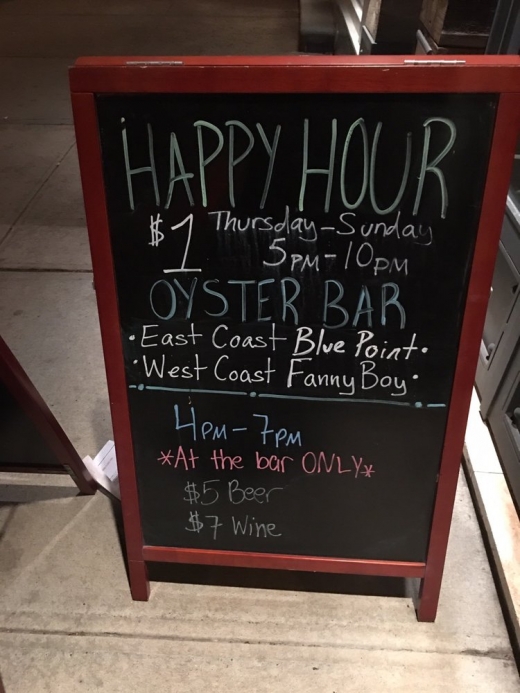 HAPPY HOUR
$1 Thursday-Sunday
5PM-10PM
OYSTER BAR
·East Coast Blue Point·
·West Coast Fanny Boy·
4PM-7PM
*At the bar ONLY*
$5 Beer
$7 Wine